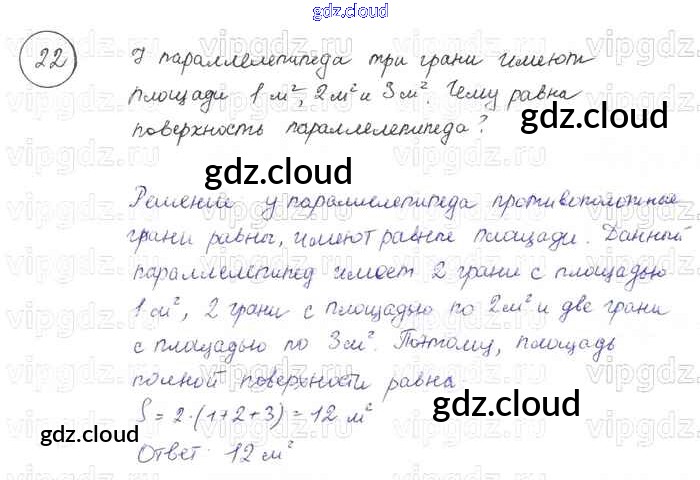 gdz.cloud
22 У параллелепипеда три грани имеют
площади 1 м², 2 м² и 3 м². Чему равна
поверхность параллелепипеда?
gdz.cloud
gdz.cloud
Решение у параллелепипеда противоположные
грани равны, имеют равные площади. Данный
параллелепипед имеет 2 грани с площадью
1 м², 2 грани с площадью по 2 м² и две грани
с площадью по 3 м². Поэтому, площадь
полной поверхности равна
S = 2·(1+2+3) = 12 м²
gdz.cloud
gdz.cloud
Ответ 12 м²